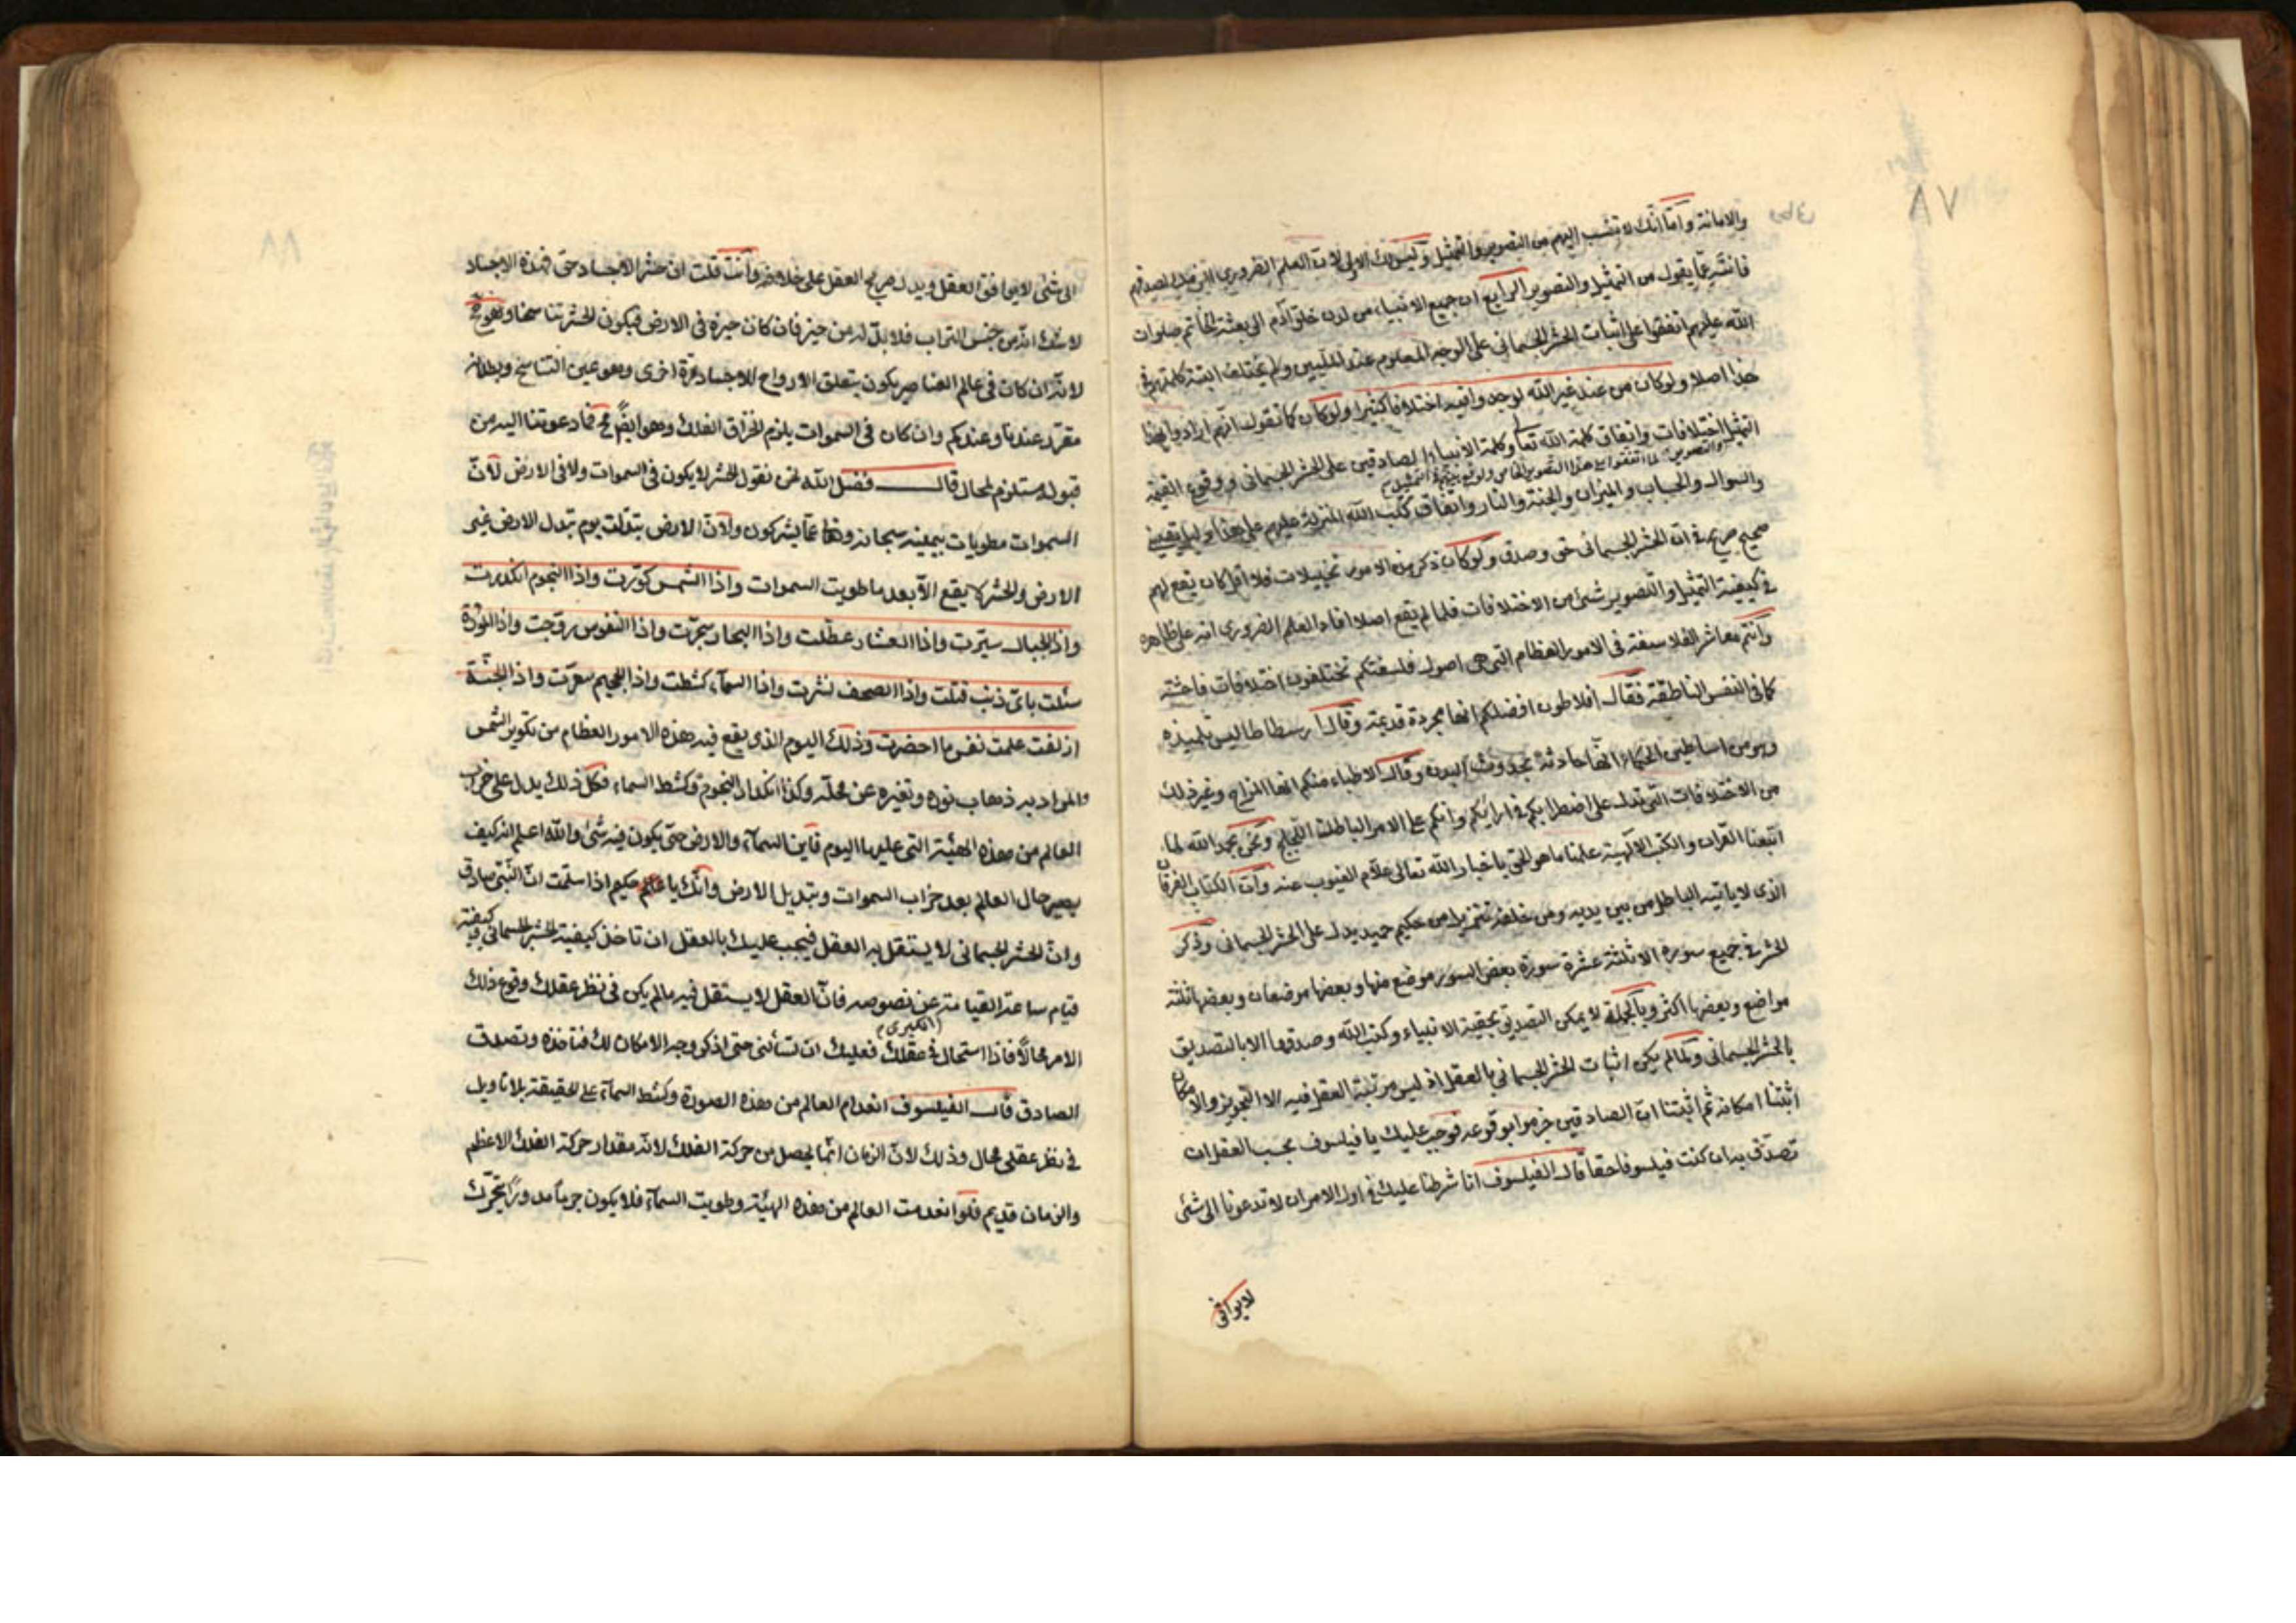 ٨٧
والامانة واما انك لا تنسب اليهم من التصوير والتمثيل وليس لك الاولى لان العلم الضروري
فانشرعا يقول من التمثيل والتصوير الرابع ان جميع الانبياء من لدن خلق آدم الى بعثة الخاتم صلوات
الله عليهم اتفقوا على اثبات الحشر الجسماني على الوجه المعلوم عند المليين ولم يختلف البتة كلمتهم في
هذا اصلا ولو كان من عند غير الله لوجدوا فيه اختلافا كثيرا ولو كان كما تقول انهم ارادوا بهذا
التمثيل اختلافات واتفاق كلمة الله تعالى وكلمة الانبياء الصادقين على الحشر الجسماني ووقوع القيمة
والتصوير لما اتفقوا على هذا التصوير الخاص
والسوال والحساب والميزان والجنة والنار واتفاق كتب الله المنزلة عليهم على هذا دليل يقيني
صحيح صريح في ان الحشر الجسماني حق وصدق ولو كان ذكر هذه الامور تخييلات فلا اقل كان يقع لهم
في كيفية التمثيل والتصوير شئ من الاختلافات فلما لم يقع اصلا افاد العلم الضروري انه على ظاهره
وانتم معاشر الفلاسفة في الامور العظام التي هي اصول فلسفتكم تختلفون اختلافات فاحشة
كما في النفس الناطقة فقال افلاطون افضلكم انها مجردة قديمة وقال ارسطاطاليس تلميذه
وهو من اساطين الحكماء انها حادثة بحدوث البدن وقال الاطباء منكم انها المزاج وغير ذلك
من الاختلافات التي تدل على اضطرابكم في ارائكم وانكم على الامر الباطل اللجلج ونحن بحمد الله لما
اتبعنا القران والكتب الالهية علمنا ما هو الحق باخبار الله تعالى علام الغيوب عنه وان الكتاب الفرقان
الذي لا ياتيه الباطل من بين يديه ومن خلفه تنزيل من حكيم حميد يدل على الحشر الجسماني وذكر
الحشر في جميع سوره الا ثلثة عشرة سورة بعض السور موضع منها وبعضها موضعان وبعضها ثلثة
مواضع وبعضها اكثر وبالجملة لا يمكن التصديق بحقية الانبياء وكتب الله وصدقها الا بالتصديق
بالحشر الجسماني ولما لم يكن اثبات الحشر الجسماني بالعقل اذ ليس مرتبة العقل فيه الا التجويز والامكان
اثبتنا امكانه ثم اثبتنا ان الصادقين جزموا بوقوعه فوجب عليك يا فيلسوف بحسب العقل ان
تصدق به ان كنت فيلسوفا حقا قال الفيلسوف انا شرطنا عليك في اول الامر ان لا تدعونا الى شئ
لا يوافق
٨٨
الى شئ لا يوافق العقل ويدل صريح العقل على خلافه وانت قلت ان حشر الاجساد حق فهذه الاجساد
لا شك انه من جنس التراب فلا بد له من حيز فان كان حيزه في الارض فيكون الحشر تناسخا وهو مح
لانه ان كان في عالم العناصر يكون يتعلق الارواح للاجساد مرة اخرى وهو عين التناسخ وبطلانه
مقرر عندنا وعندكم وان كان في السموات يلزم الخراق الفلك وهو ايضا مح فما دعوتنا اليه من
قبوله مستلزم لمحال قال فضل الله نحن نقول الحشر لا يكون في السموات ولا في الارض لان
السموات مطويات بيمينه سبحانه وتعا عما يشركون ولان الارض بتدلت يوم تبدل الارض غير
الارض والحشر لا يقع الا بعد ما طويت السموات واذا الشمس كورت واذا النجوم انكدرت
واذا الجبال سيرت واذا العشار عطلت واذا البحار سجرت واذا النفوس زوجت واذا الموؤدة
سئلت باى ذنب قتلت واذا الصحف نشرت واذا السماء كشطت واذا الجحيم سعرت واذا الجنة
ازلفت علمت نفس ما احضرت وذلك اليوم الذي يقع فيه هذه الامور العظام من تكوير الشمس
والمراد به ذهاب نوره وتغيره عن محله وكذا انكدار النجوم وكشط السماء فكل ذلك يدل على خراب
العالم من هذه الهيئة التي عليها اليوم فاين السماء والارض حتى يكون فيه شئ والله اعلم انه كيف
يصير حال العالم بعد خراب السموات وتبديل الارض وانك يا حكيم اذا سلمت ان النبي صادق
وان الحشر الجسماني لا يستقل به العقل فيجب عليك بالعقل ان تاخذ كيفية الحشر الجسماني وكيفية
قيام ساعة القيامة عن نصوصه فان العقل لا يستقل فيه مالم يكن في نظر عقلك وقوع ذلك
(الكبرى)
الامر محالا فاذا استحال في عقلك فعليك ان تسألني حتى اذكر وجه الامكان لك فتاخذه وتصدق
الصادق قال الفيلسوف انعدام العالم من هذه الصورة وكشط السماء على الحقيقة بلا تاويل
في نظر عقلى محال وذلك لان الزمان انما يحصل من حركة الفلك لانه مقدار حركة الفلك الاعظم
والزمان قديم فلو انعدمت العالم من هذه الهيئة وطويت السماء فلا يكون جرما مدورا يتحرك